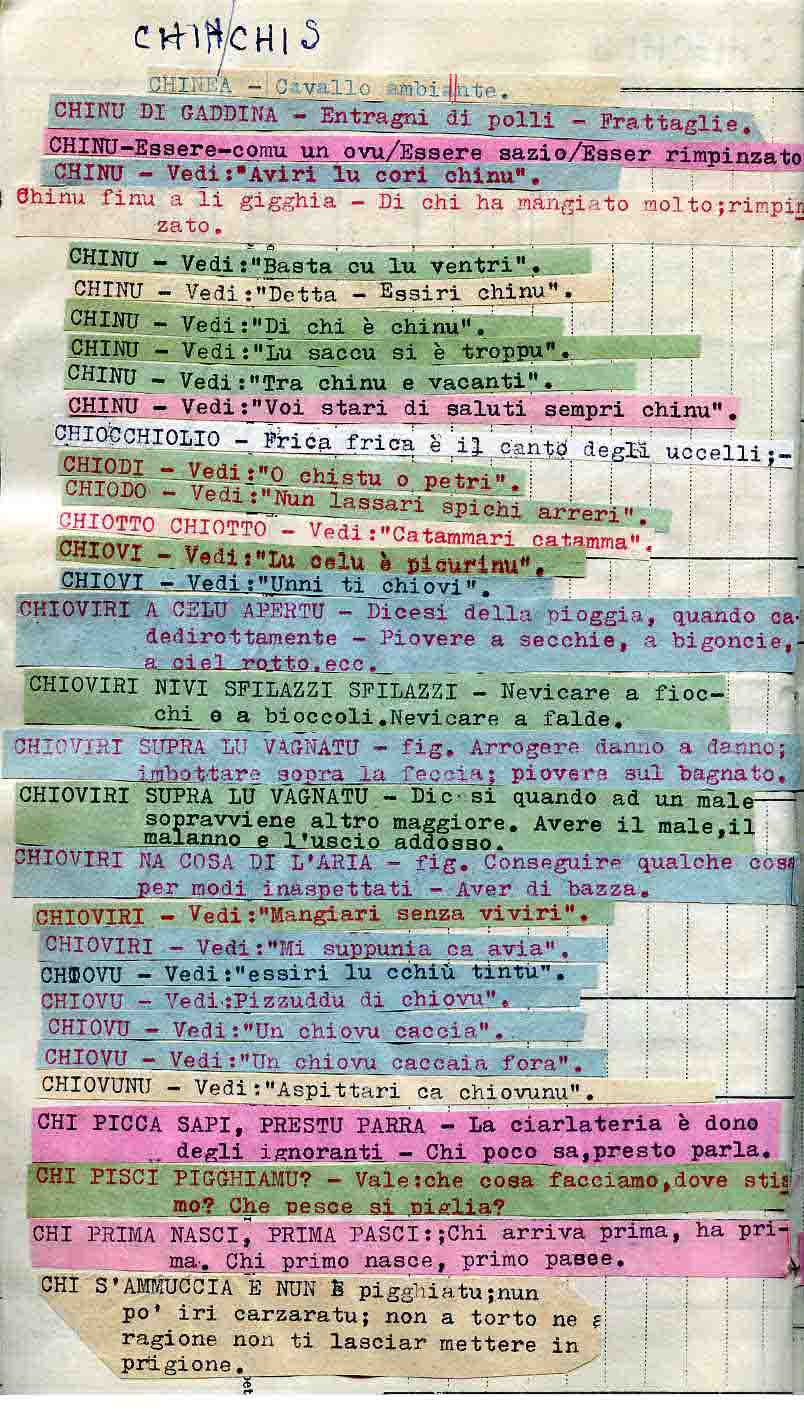 CHIN/CHIS
CHINEA - Cavallo ambiante.
CHINU DI GADDINA - Entragni di polli - Frattaglie.
CHINU-Essere-comu un ovu/Essere sazio/Esser rimpinzato
CHINU - Vedi:"Aviri lu cori chinu".
Chinu finu a li gigghia - Di chi ha mangiato molto;rimpin
zato.
CHINU - Vedi:"Basta cu lu ventri".
CHINU - Vedi:"Detta - Essiri chinu".
CHINU - Vedi:"Di chi è chinu".
CHINU - Vedi:"Lu saccu si è troppu".
CHINU - Vedi:"Tra chinu e vacanti".
CHINU - Vedi:"Voi stari di saluti sempri chinu".
CHIOCCHIOLIO - Frica frica è il canto degli uccelli;-
CHIODI - Vedi:"O chistu o petri".
CHIODO - Vedi:"Nun lassari spichi arreri".
CHIOTTO CHIOTTO - Vedi:"Catammari catamma".
CHIOVI - Vedi:"Lu celu è picurinu".
CHIOVI - Vedi:"Unni ti chiovi".
CHIOVIRI A CELU APERTU - Dicesi della pioggia, quando ca-
dedirottamente - Piovere a secchie, a bigoncie,
a ciel rotto.ecc.
CHIOVIRI NIVI SFILAZZI SFILAZZI - Nevicare a fioc-
chi e a bioccoli.Nevicare a falde.
CHIOVIRI SUPRA LU VAGNATU - fig. Arrogere danno a danno;
imbottare sopra la feccia; piovere sul bagnato.
CHIOVIRI SUPRA LU VAGNATU - Dic si quando ad un male
sopravviene altro maggiore. Avere il male,il
malanno e l'uscio addosso.
CHIOVIRI NA COSA DI L'ARIA - fig. Conseguire qualche cosa
per modi inaspettati - Aver di bazza.
CHIOVIRI - Vedi:"Mangiari senza viviri".
CHIOVIRI - Vedi:"Mi suppunia ca avia".
CHIOVU - Vedi:"essiri lu cchiù tintu".
CHIOVU - Vedi:Pizzuddu di chiovu".
CHIOVU - Vedi:"Un chiovu caccia".
CHIOVU - Vedi:"Un chiovu caccaia fora".
CHIOVUNU - Vedi:"Aspittari ca chiovunu".
CHI PICCA SAPI, PRESTU PARRA - La ciarlateria è dono
degli ignoranti - Chi poco sa,presto parla.
CHI PISCI PIGGHIAMU? - Vale:che cosa facciamo,dove stia
mo? Che pesce si piglia?
CHI PRIMA NASCI, PRIMA PASCI:;Chi arriva prima, ha pri-
ma. Chi primo nasce, primo pasce.
CHI S'AMMUCCIA E NUN È pigghiatu;nun
po' iri carzaratu; non a torto ne a
ragione non ti lasciar mettere in
prigione.